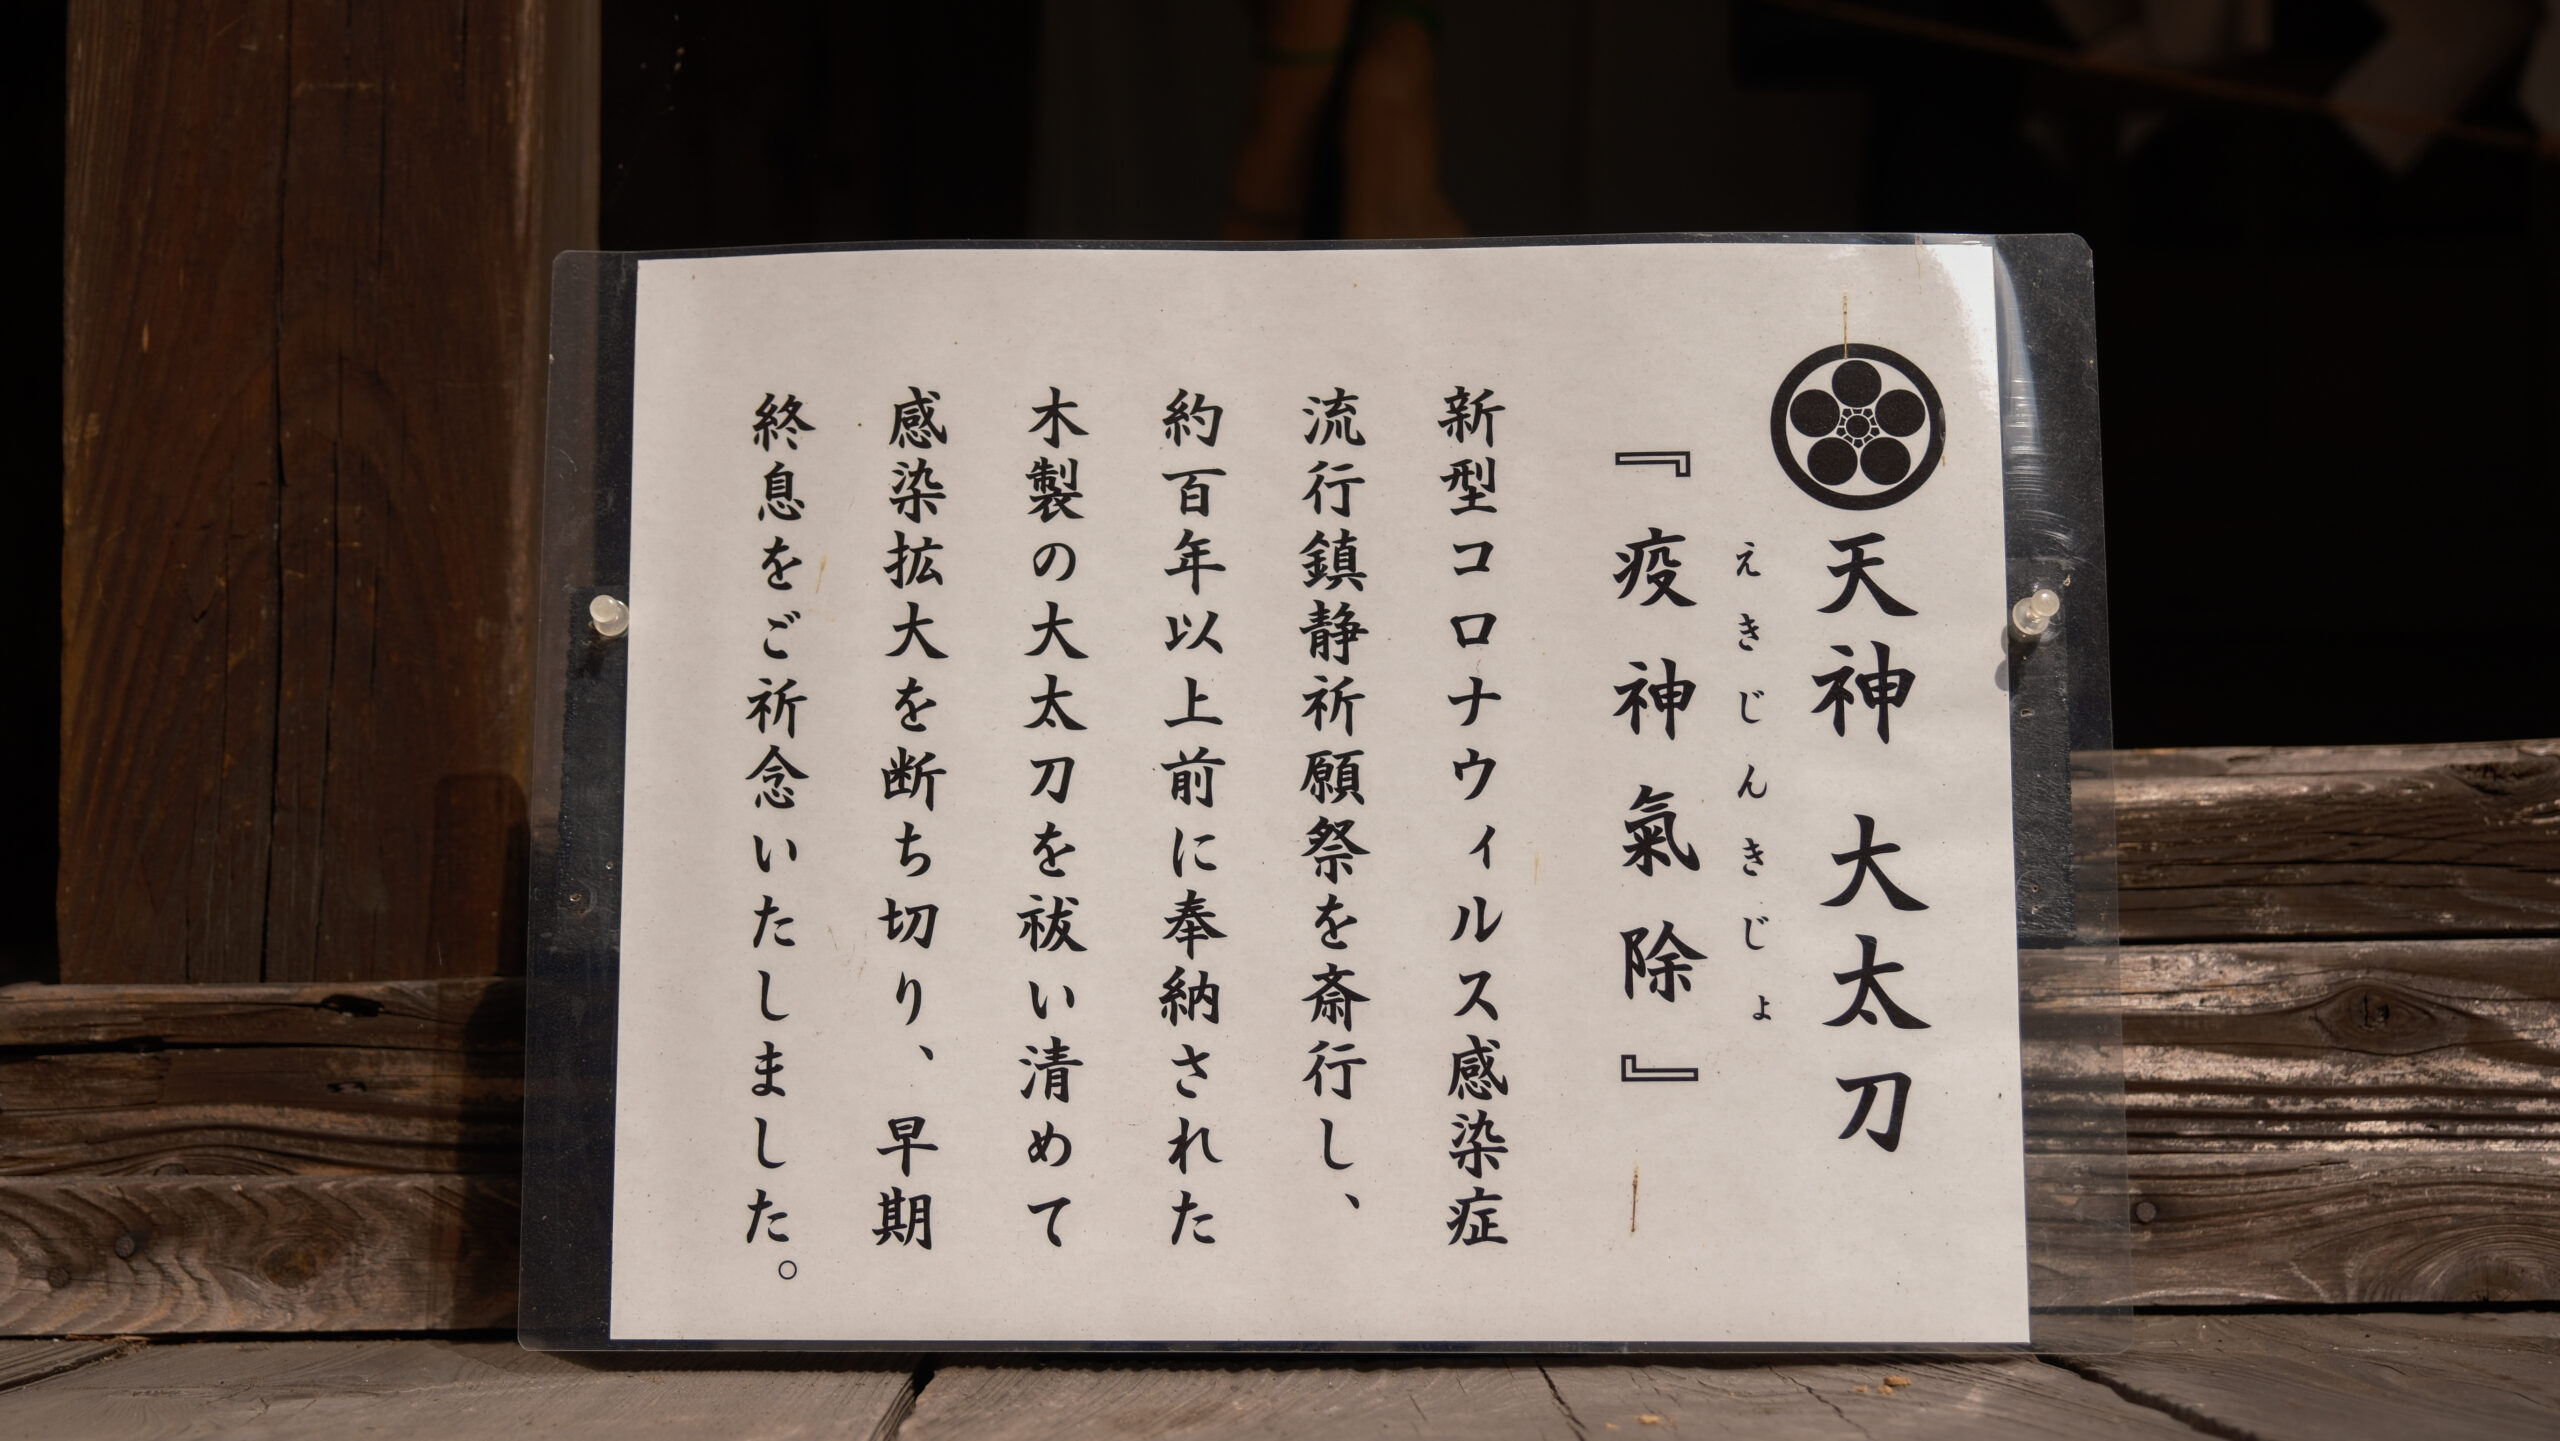 天神 大太刀
えきじんきじょ
『疫神氣除』
新型コロナウィルス感染症
流行鎮静祈願祭を斎行し、
約百年以上前に奉納された
木製の大太刀を祓い清めて
感染拡大を断ち切り、早期
終息をご祈念いたしました。